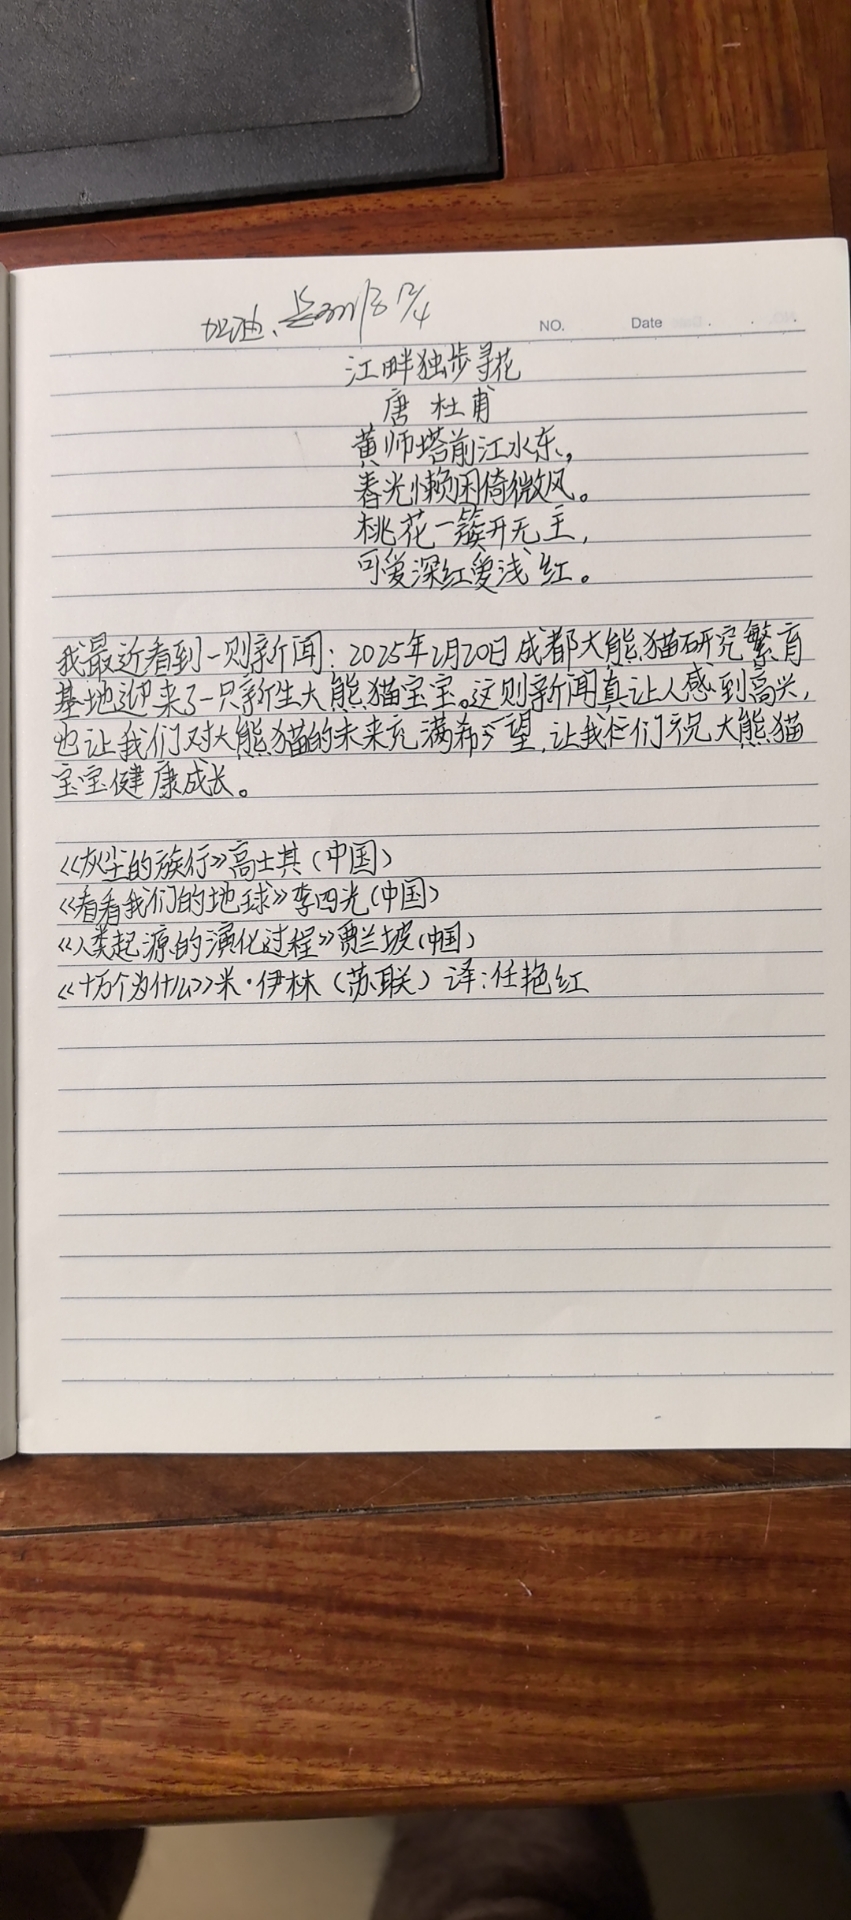 加油、
NO. Date
江畔独步寻花
唐 杜甫
黄师塔前江水东,
春光懒困倚微风。
桃花一簇开无主,
可爱深红爱浅红。
我最近看到一则新闻：2025年2月20日成都大熊猫研究繁育
基地迎来了一只新生大熊猫宝宝。这则新闻真让人感到高兴,
也让我们对大熊猫的未来充满希望,让我们祝大熊猫
宝宝健康成长。
《灰尘的旅行》高士其(中国)
《看看我们的地球》李四光(中国)
《人类起源的演化过程》贾兰坡(中国)
《十万个为什么》米·伊林（苏联）译：任艳红